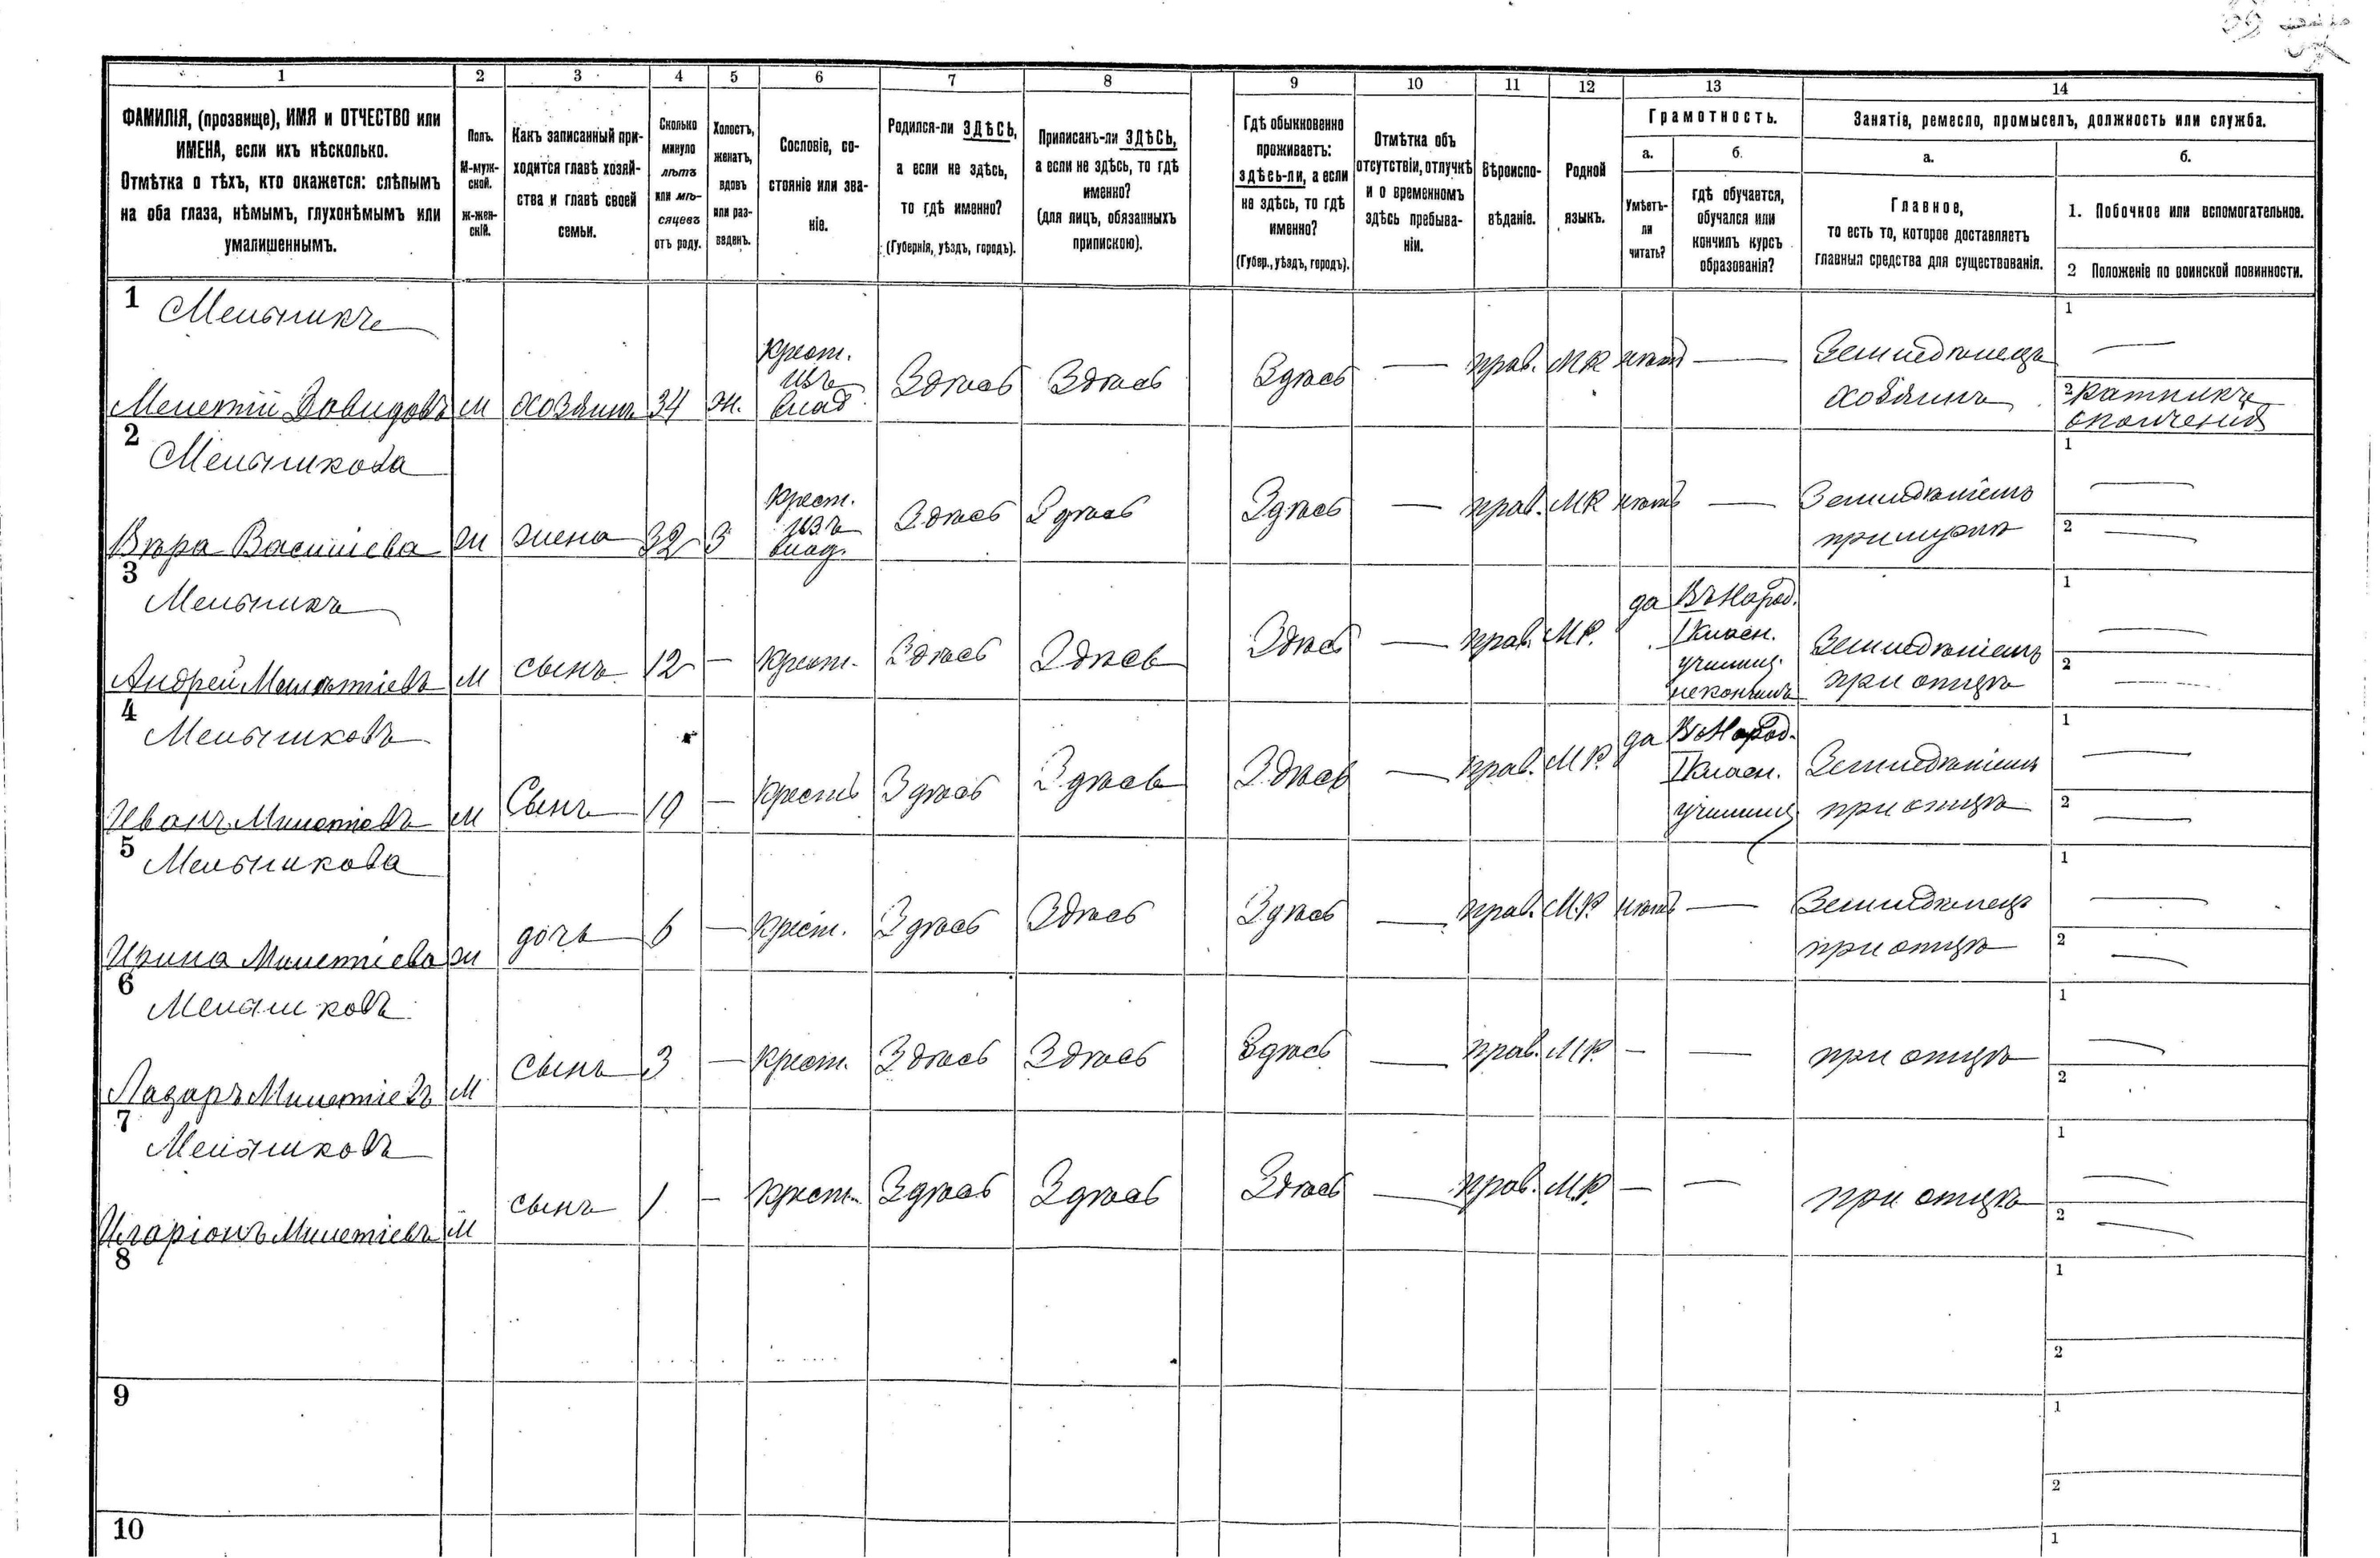 1 2 3 4 5 6 7 8 9 10 11 12 13 14
ФАМИЛІЯ, (прозвище), ИМЯ и ОТЧЕСТВО или
ИМЕНА, если ихъ нѣсколько.
Отмѣтка о тѣхъ, кто окажется: слѣпымъ
на оба глаза, нѣмымъ, глухонѣмымъ или
умалишеннымъ.
Полъ.
М-муж-
ской.
Ж-жен-
скій.
Какъ записанный при-
ходится главѣ хозяй-
ства и главѣ своей
семьи.
Сколько
минуло
лѣтъ
или мѣ-
сяцевъ
отъ роду.
Холостъ,
женатъ,
вдовъ
или раз-
веденъ.
Сословіе, со-
стояніе или зва-
ніе.
Родился-ли ЗДѢСЬ,
а если не здѣсь,
то гдѣ именно?
(Губернія, уѣздъ, городъ).
Приписанъ-ли ЗДѢСЬ,
а если не здѣсь, то гдѣ
именно?
(для лицъ, обязанныхъ
припискою).
Гдѣ обыкновенно
проживаетъ:
здѣсь-ли, а если
не здѣсь, то гдѣ
именно?
(Губер., уѣздъ, городъ).
Отмѣтка объ
отсутствіи, отлучкѣ
и о временномъ
здѣсь пребыва-
ніи.
Вѣроиспо-
вѣданіе.
Родной
языкъ.
Грамотность.
а.
Умѣетъ-
ли
читать?
б.
гдѣ обучается,
обучался или
кончилъ курсъ
образованія?
Занятіе, ремесло, промыселъ, должность или служба.
а.
Главное,
то есть то, которое доставляетъ
главныя средства для существованія.
б.
1. Побочное или вспомогательное.
2 Положеніе по воинской повинности.
1 Мельникъ
Мелетій Давидовъ
м
хозяинъ
34
ж.
Крест.
изъ
влад.
Здѣсь
Здѣсь
Здѣсь
—
прав.
МР
нѣтъ
—
Земледѣлецъ
хозяинъ
1 —
2 ратникъ
ополченія
2
Мельникова
Вѣра Василіева
ж
жена
32
З
Крест.
изъ
влад.
Здѣсь
Здѣсь
Здѣсь
—
прав.
МР
нѣтъ
—
Земледѣліемъ
при мужѣ
1 —
2 —
3
Мельникъ
Андрей Мелетіевъ
м
сынъ
12
—
Крест.
Здѣсь
Здѣсь
Здѣсь
—
прав.
МР.
да
Въ Народ.
I Класн.
училищ.
не кончилъ
Земледѣліемъ
при отцѣ
1 —
2 —
4
Мельниковъ
Иванъ Милетіевъ
м
Сынъ
10
—
Крестъ
Здѣсь
Здѣсь
Здѣсь
—
прав.
МР.
да
Въ Народ.
I Класн.
училищ
Земледѣліемъ
при отцѣ
1 —
2 —
5
Мельникова
Ирина Милетіева
ж
дочь
6
—
Крест.
Здѣсь
Здѣсь
Здѣсь
—
прав.
М.Р.
нѣтъ
—
Земледѣлецъ
при отцѣ
1 —
2 —
6
Мельниковъ
Лазарь Милетіевъ
м
сынъ
3
—
Крест.
Здѣсь
Здѣсь
Здѣсь
—
прав.
МР.
—
—
при отцѣ
1 —
2
7
Мельниковъ
Иларіонъ Милетіевъ
м
сынъ
1
—
Крест.
Здѣсь
Здѣсь
Здѣсь
—
прав.
М.Р.
—
—
при отцѣ
1 —
2 —
8
1
2
9
1
2
10
1